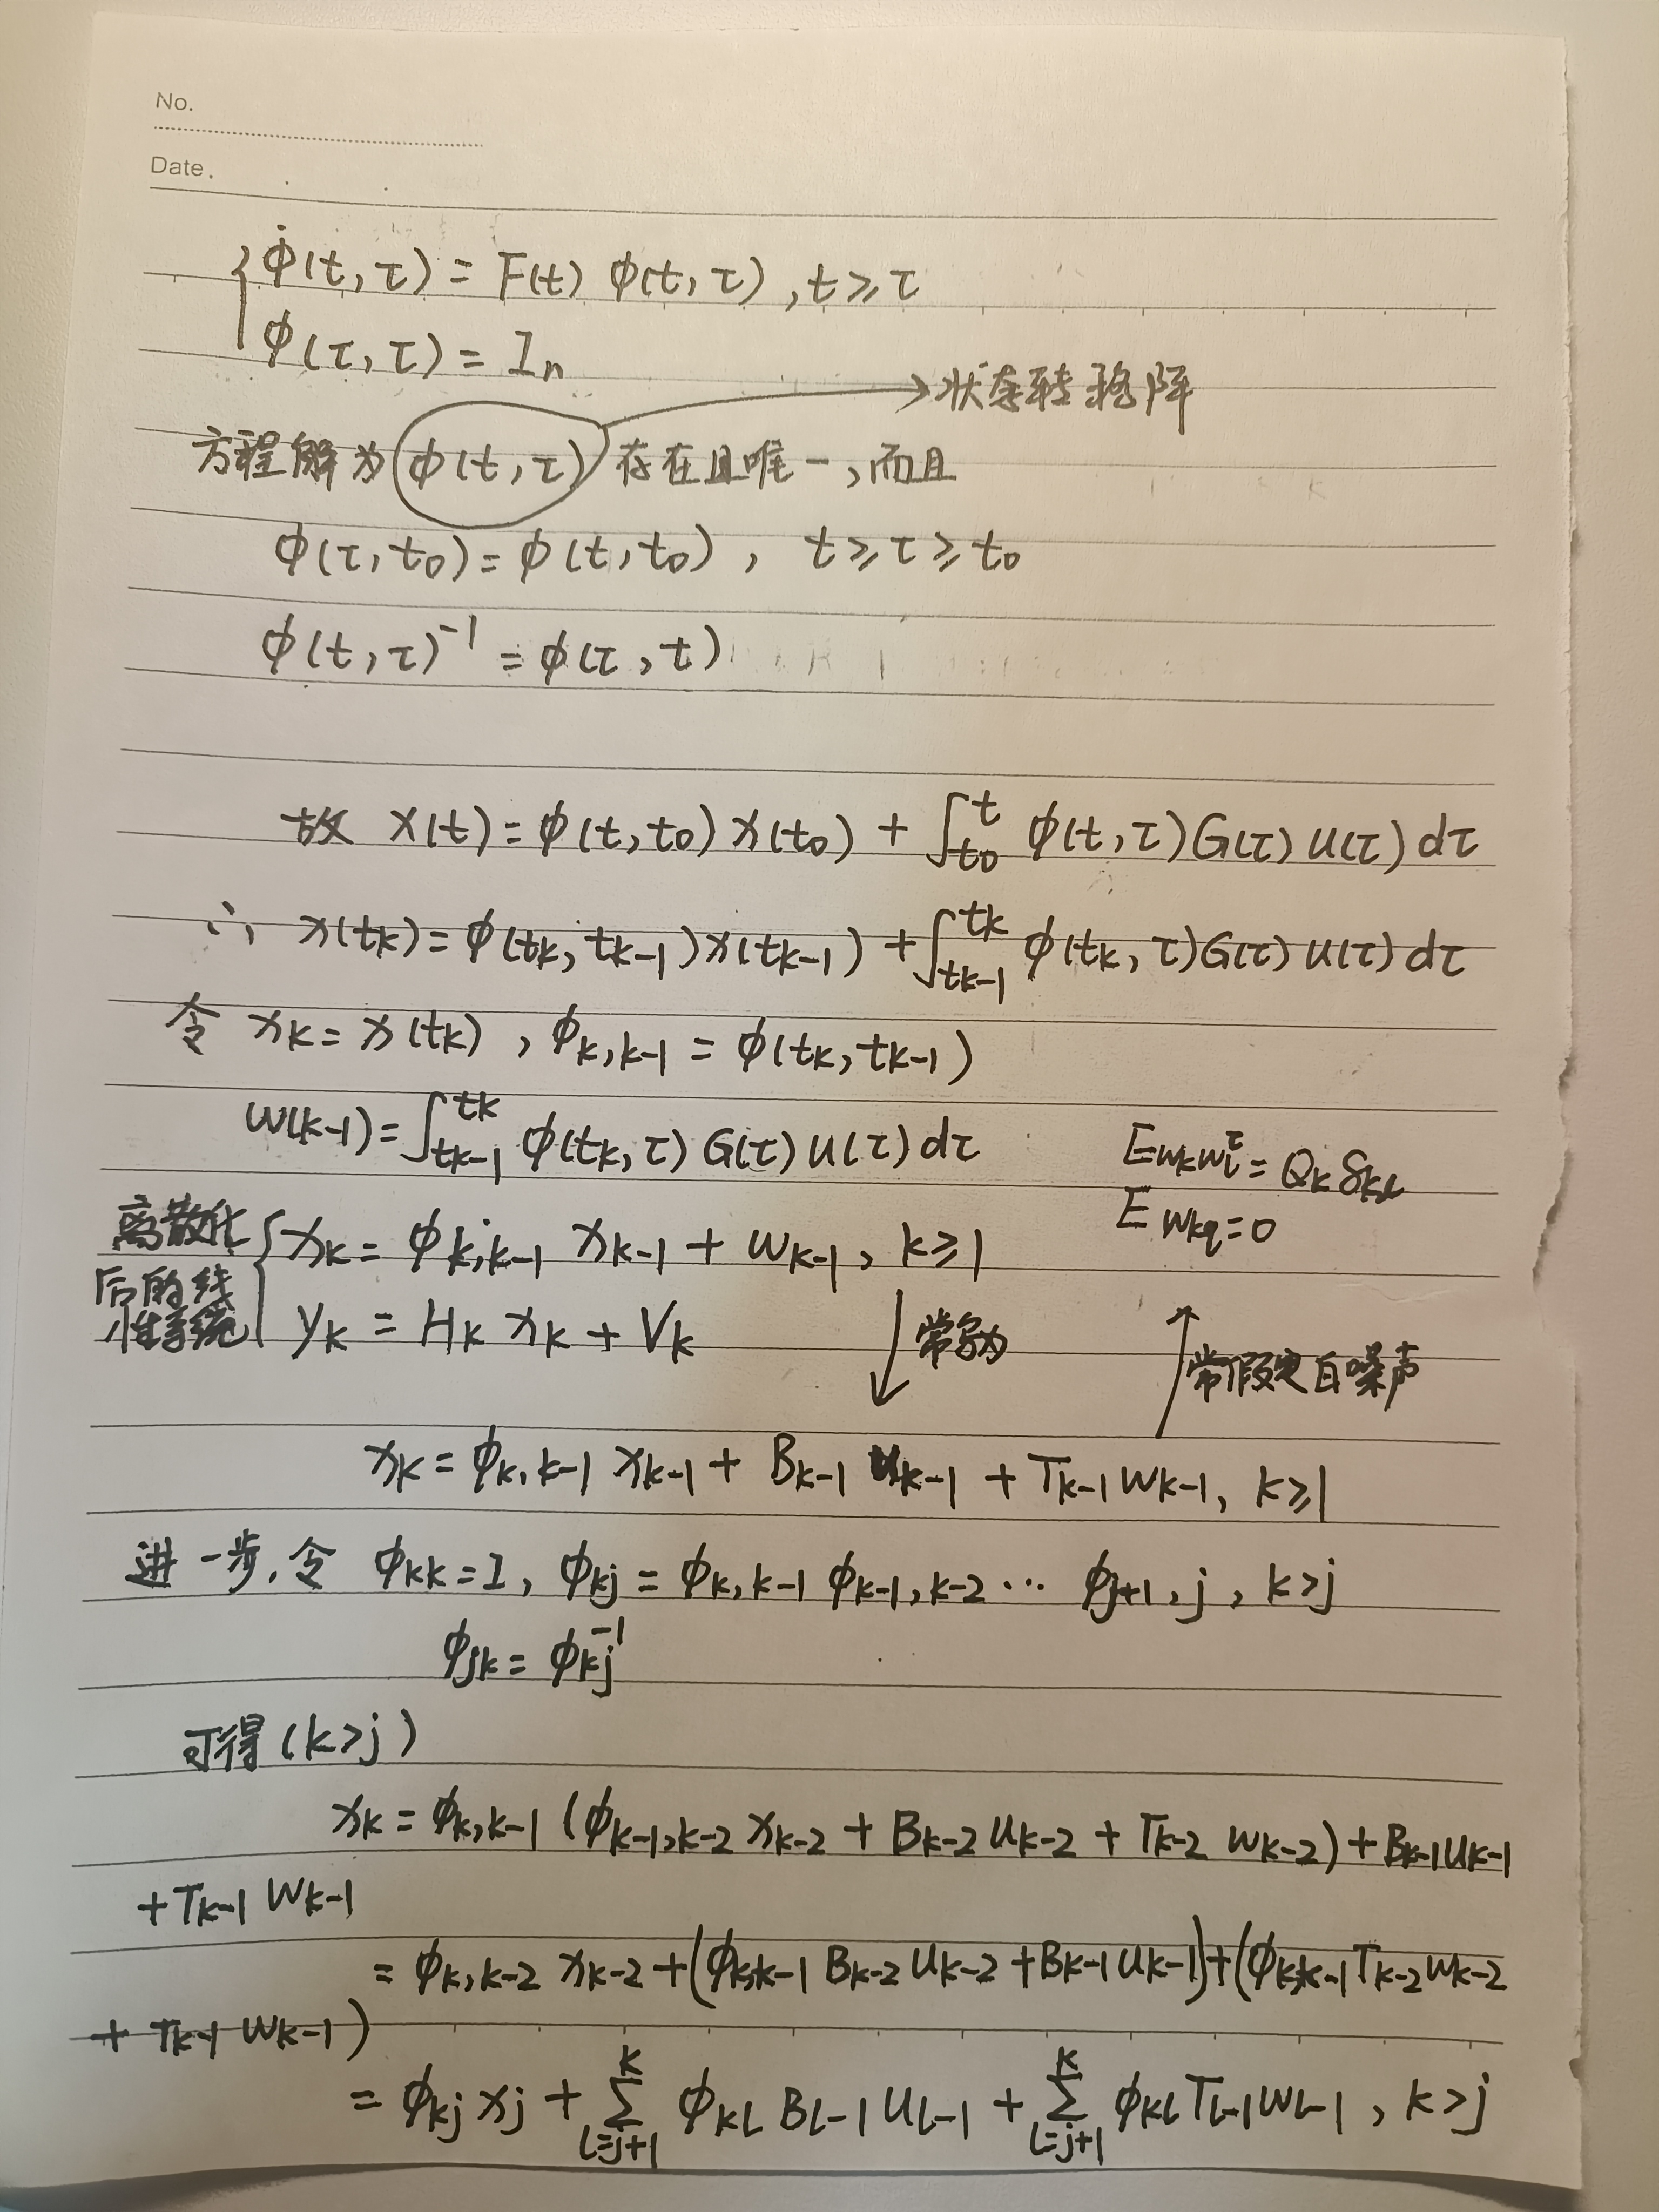 No.
Date.
{ φ̇(t,τ) = F(t) φ(t,τ), t ≥ τ
φ(τ,τ) = In
→ 状态转移阵
方程解为 φ(t,τ) 存在且唯一,而且
φ(τ,t0) = φ(t,t0), t ≥ τ ≥ t0
φ(t,τ)^-1 = φ(τ,t)
故 x(t) = φ(t,t0) x(t0) + ∫_t0^t φ(t,τ) G(τ) u(τ) dτ
∴ x(tk) = φ(tk, tk-1) x(tk-1) + ∫_tk-1^tk φ(tk,τ) G(τ) u(τ) dτ
令 xk = x(tk), φk,k-1 = φ(tk, tk-1)
w(k-1) = ∫_tk-1^tk φ(tk,τ) G(τ) u(τ) dτ
E wk wl^τ = Qk δkl
E wkq = 0
离散化后的线性系统 { xk = φk,k-1 xk-1 + wk-1, k ≥ 1
yk = Hk xk + Vk
↓ 常写为
↑ 常假定白噪声
xk = φk,k-1 xk-1 + Bk-1 uk-1 + Tk-1 wk-1, k ≥ 1
进一步,令 φkk = I, φkj = φk,k-1 φk-1,k-2 … φj+1,j, k > j
φjk = φkj^-1
可得 (k > j)
xk = φk,k-1 (φk-1,k-2 xk-2 + Bk-2 uk-2 + Tk-2 wk-2) + Bk-1 uk-1
+ Tk-1 wk-1
= φk,k-2 xk-2 + (φk,k-1 Bk-2 uk-2 + Bk-1 uk-1) + (φk,k-1 Tk-2 wk-2
+ Tk-1 wk-1)
= φkj xj + ∑_{l=j+1}^k φkl Bl-1 ul-1 + ∑_{l=j+1}^k φkl Tl-1 wl-1, k > j